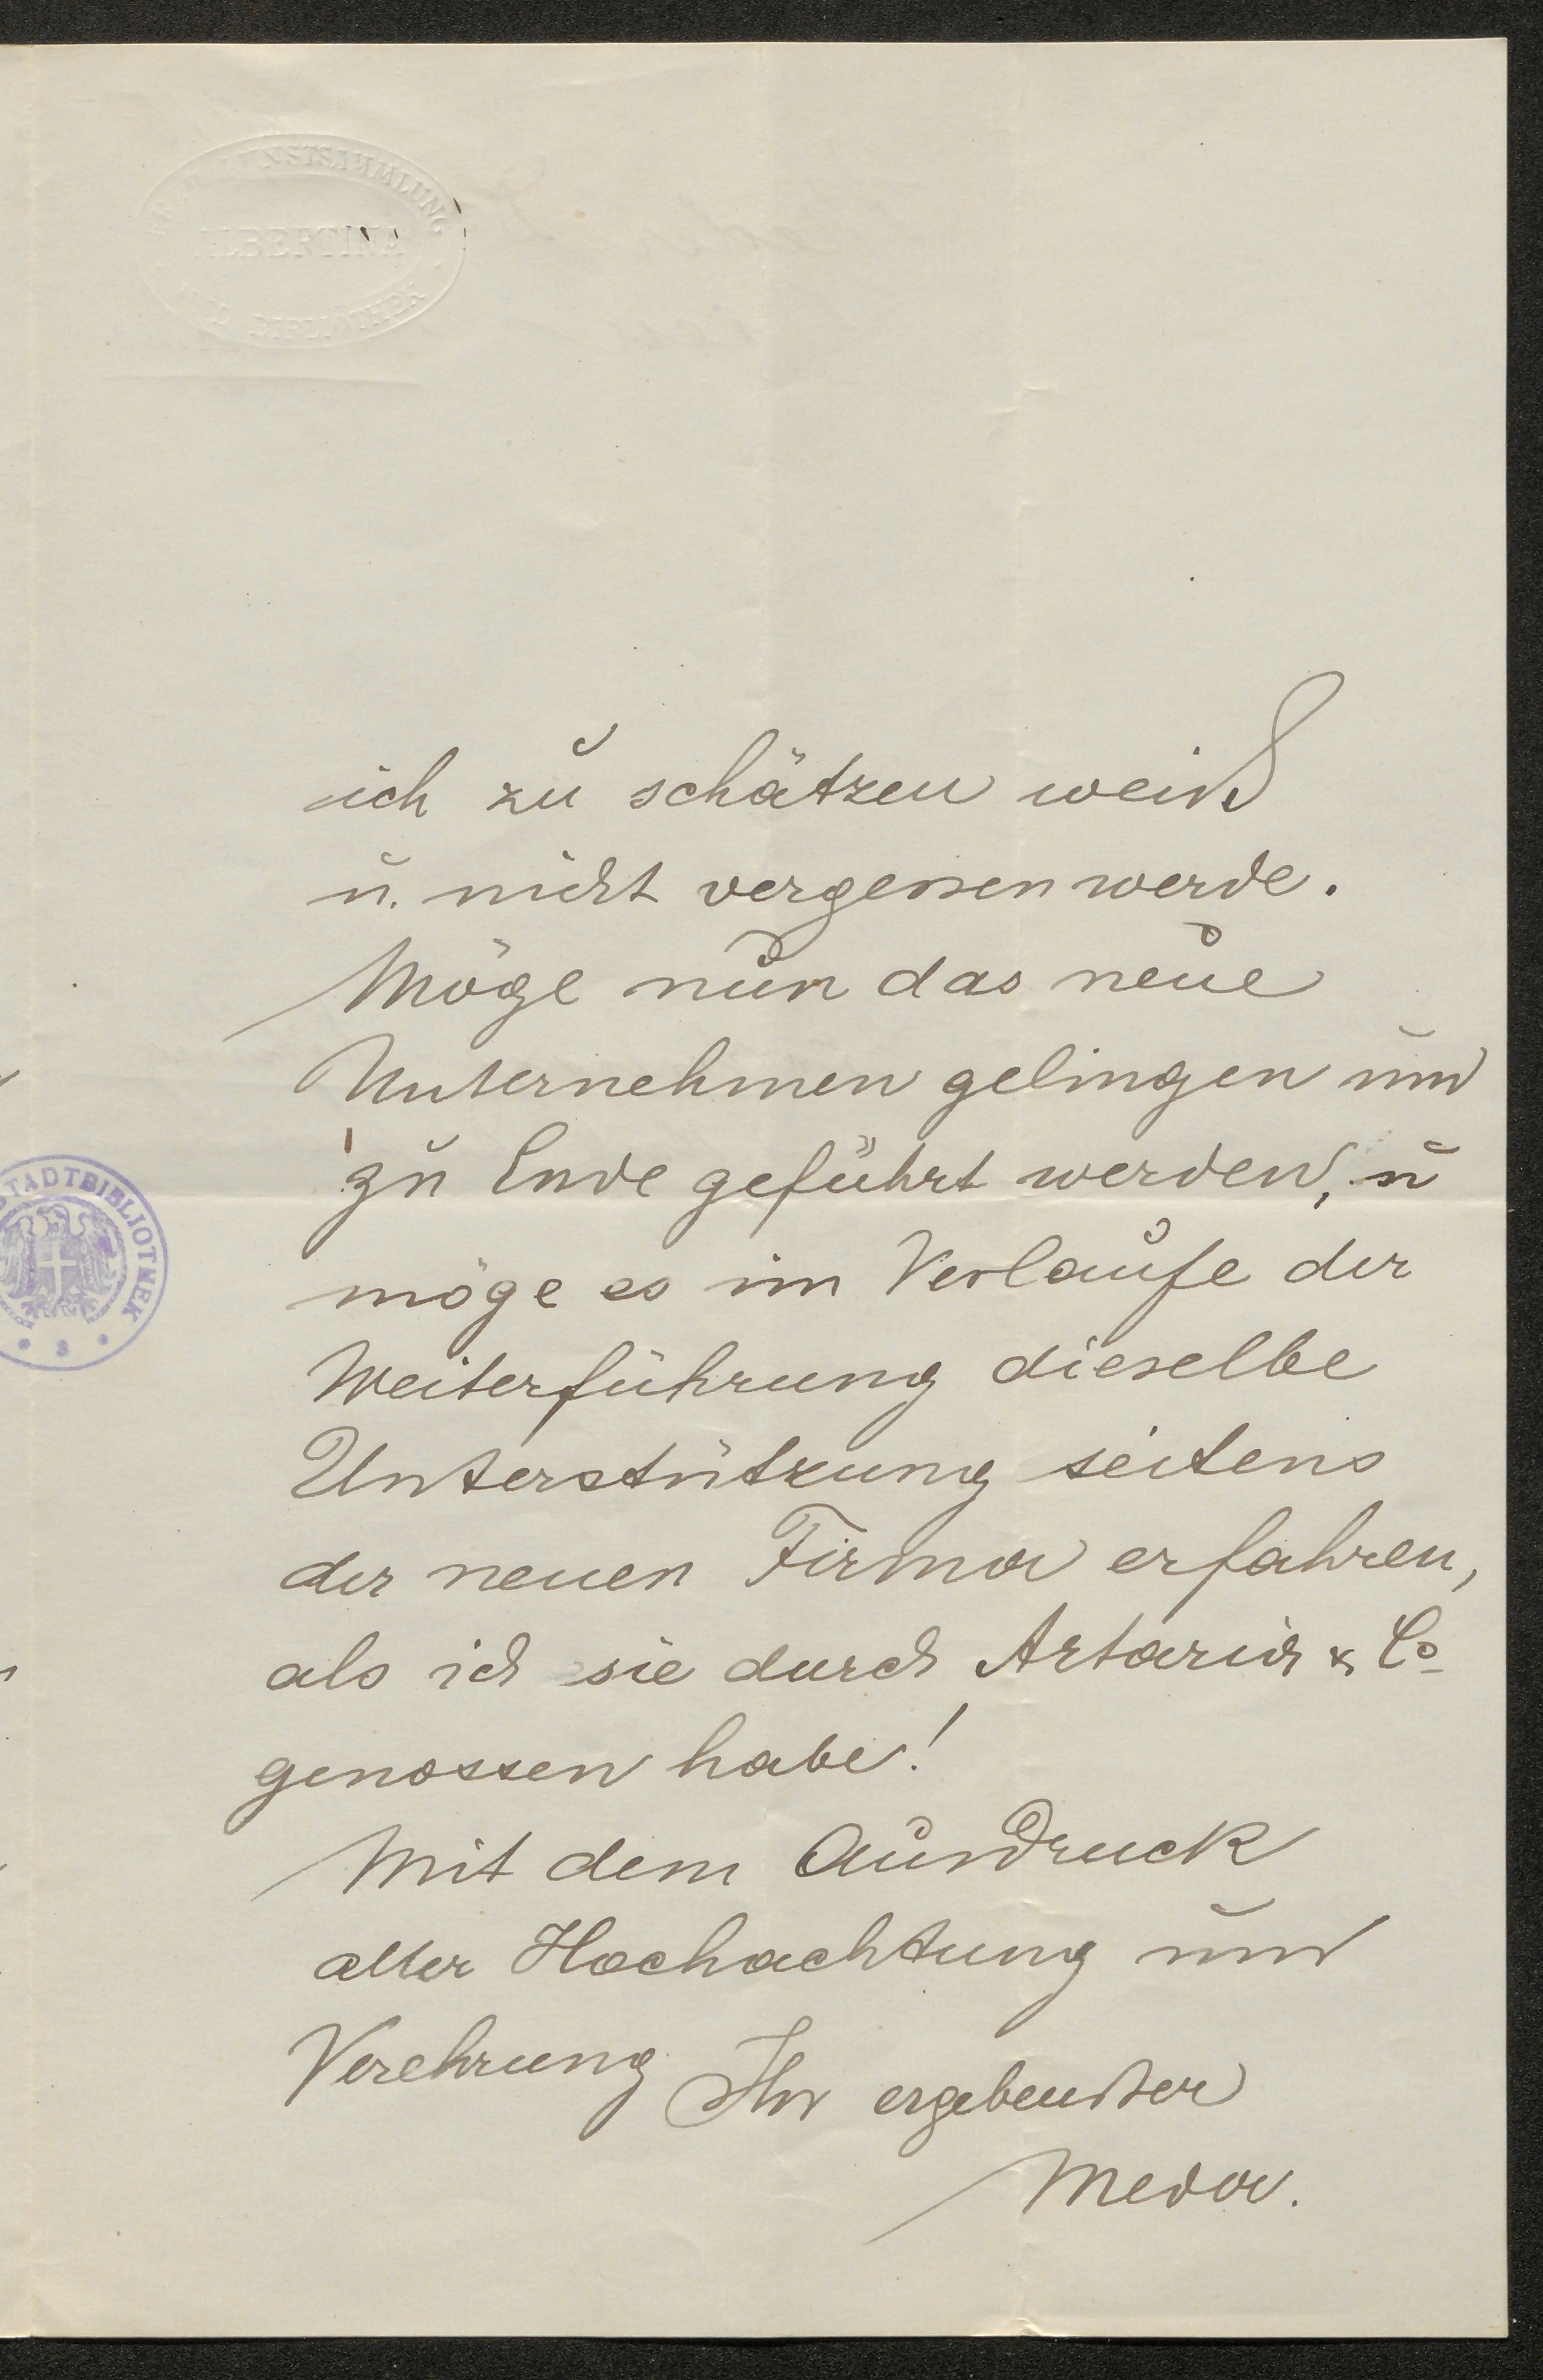 KUNSTSAMMLUNG
ALBERTINA
UND BIBLIOTHEK
ich zu schätzen weiß
u. nicht vergessen werde.
Möge nun das neue
Unternehmen gelingen und
zu Ende geführt werden, u
möge es im Verlaufe der
Weiterführung dieselbe
Unterstützung seitens
der neuen Firma erfahren,
als ich sie durch Artaria & Co
genossen habe!
Mit dem Ausdruck
aller Hochachtung und
Verehrung Ihr ergebenster
Meder.
STADTBIBLIOTHEK